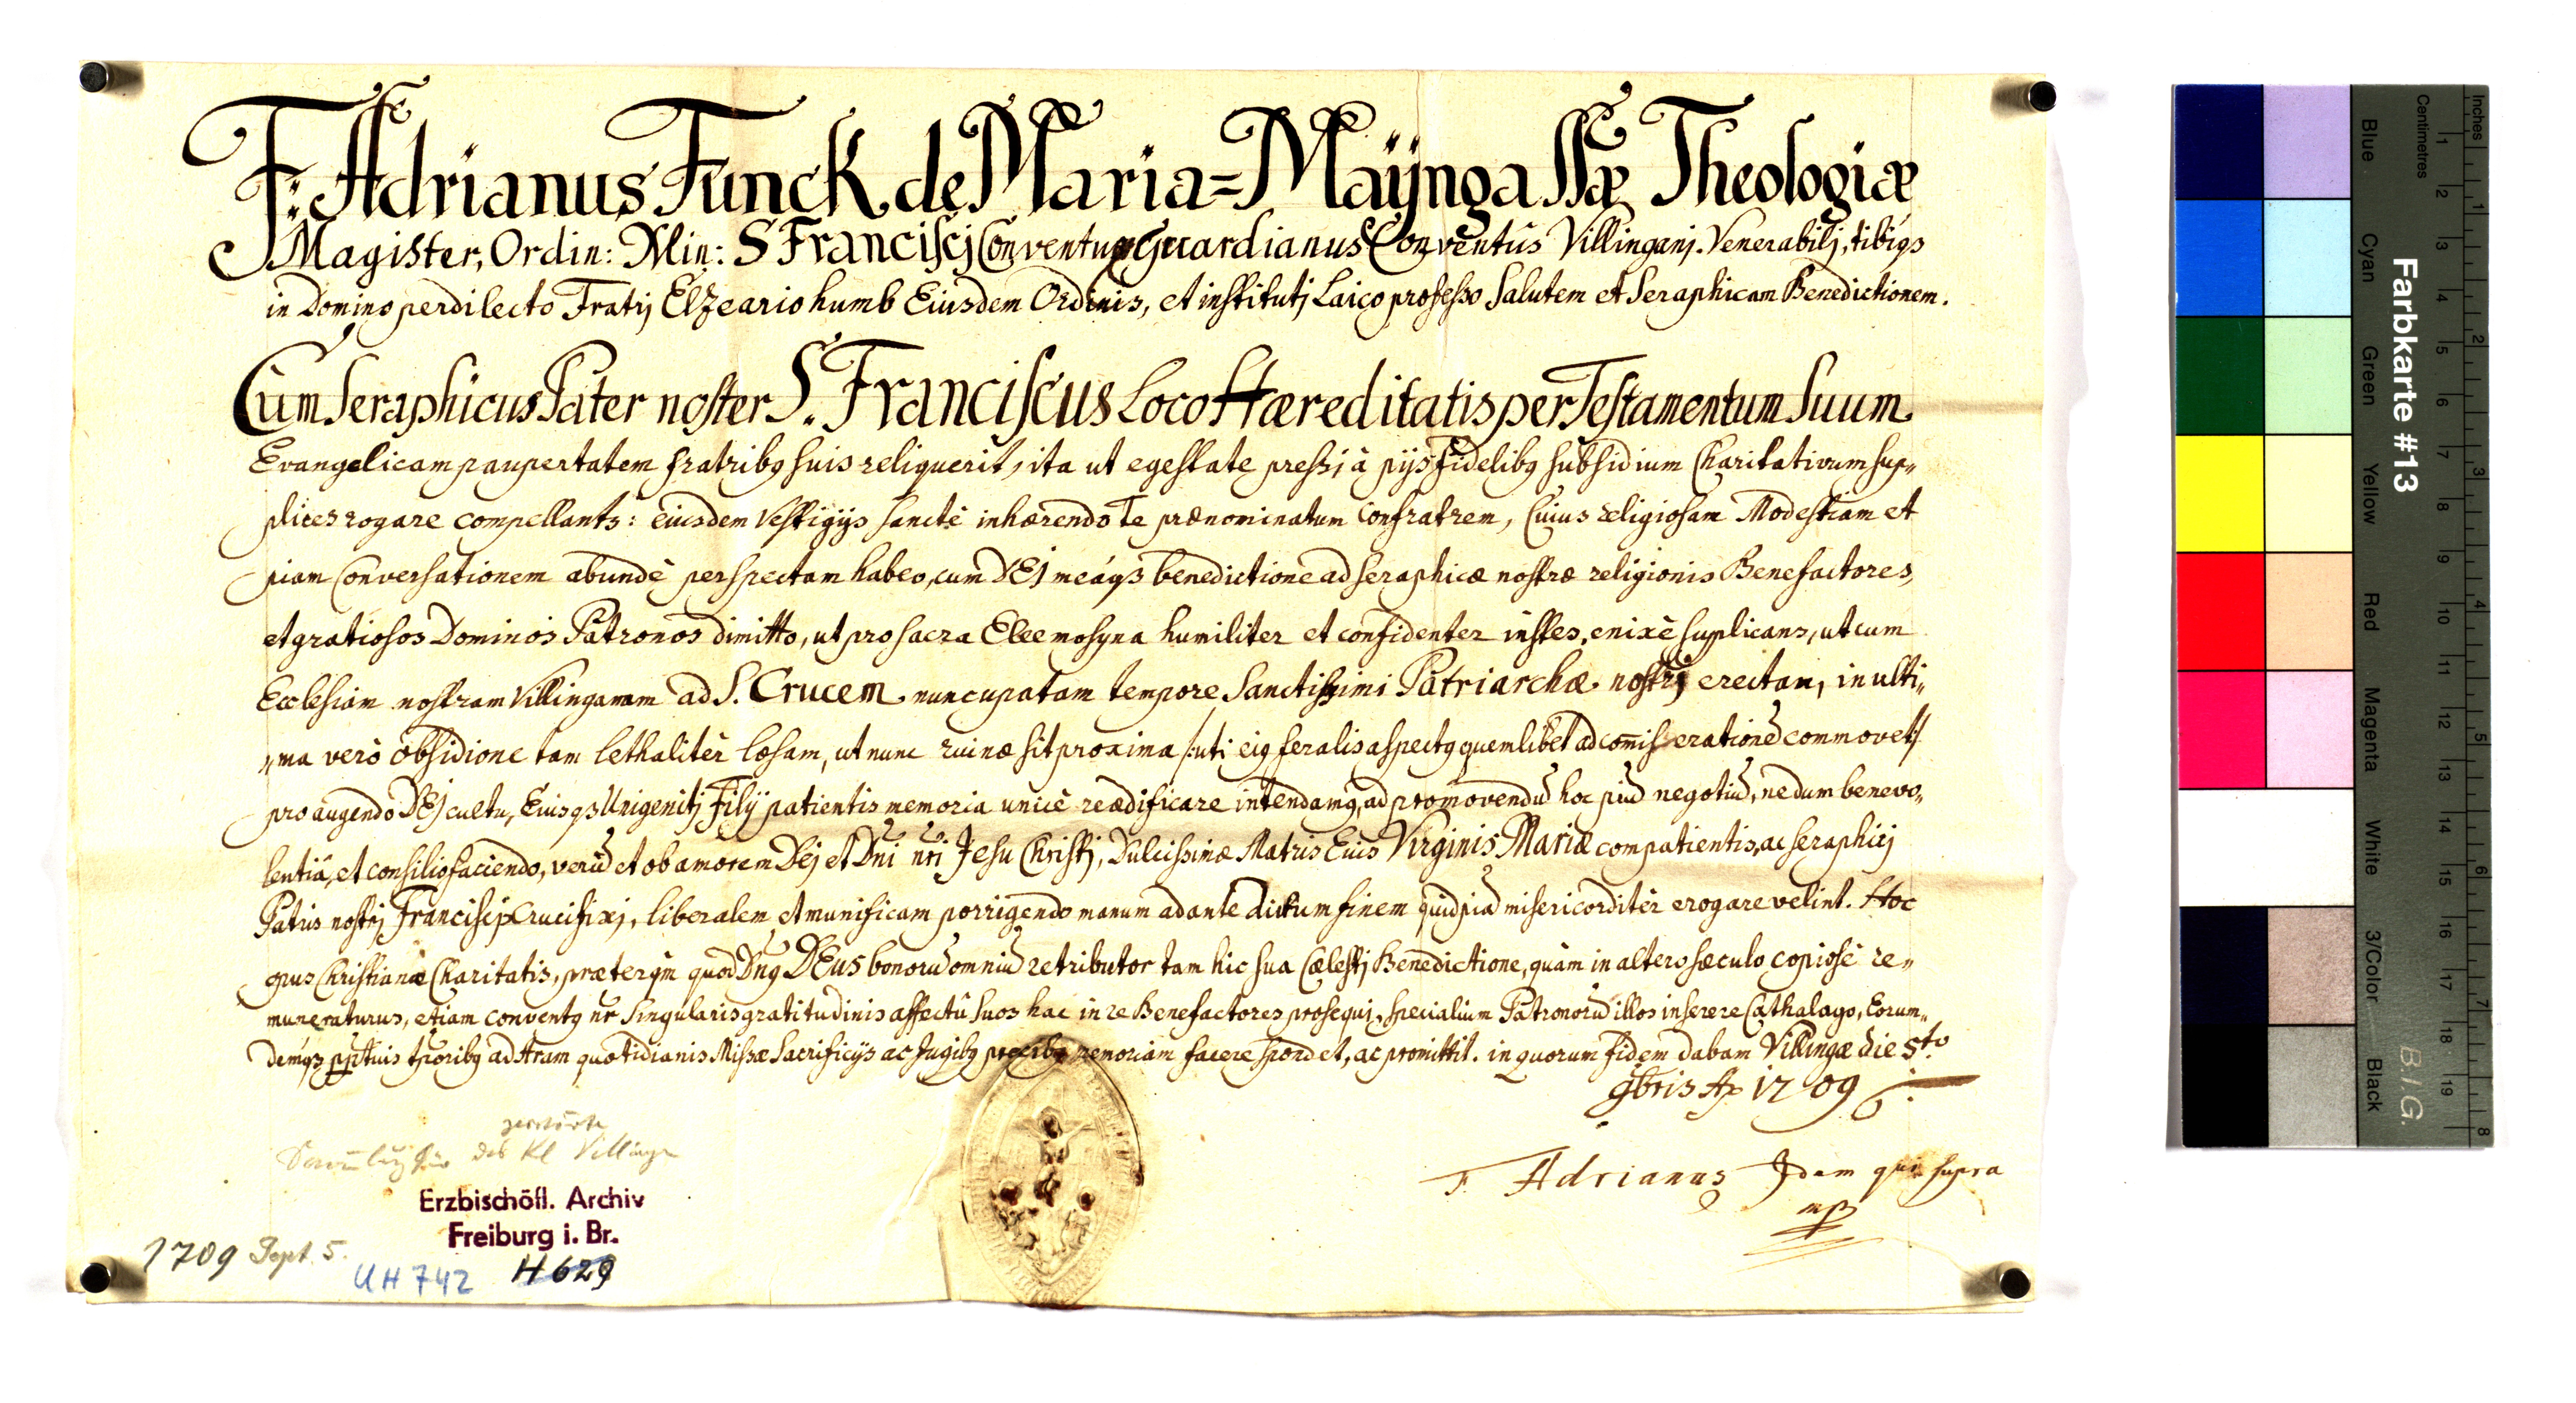 F: Adrianus Funck de Maria=Maÿnga SSæ Theologiæ
Magister, Ordin: Min: S Franciscj Conventu: Guardianus Conventûs Villinganj. Venerabilj, tibiqs
in Domino perdilecto Fratrj Elzeario humb Eiusdem Ordinis, et institutj Laico professo Salutem et Seraphicam Benedictionem.
Cum Seraphicus Pater noster S. Franciscus Loco Hæreditatis per Testamentum Suum
Evangelicam paupertatem fratribq suis reliquerit, ita ut egestate pressi à pijs fidelibq subsidium Charitativum sup„
plices rogare compellants: eiusdem Vestigijs sanctè inhærendo Te prænominatum Confratrem, Cuius religiosam Modestiam et
piam Conversationem abundè perspectam habeo, cum DEj meáqs benedictione ad seraphicæ nostræ religionis Benefactores,
et gratiosos Dominos Patronos dimitto, ut pro sacra Eleemosyna humiliter et confidenter instes, enixè supplicans, ut cum
Ecclesiam nostram Villinganam ad S. Crucem nuncupatam tempore Sanctissimi Patriarchæ nostrj erectam, in ulti„
„ma verò obsidione tam lethalitèr læsam, ut nunc ruinæ sit proxima /:uti eiq feralis aspectq quemlibet ad comiserationē commovet/
pro augendo DEj cultu, Eiusqs Unigenitj Filij patientis memoria unicè reædificare intendamq, ad promovendū hoc piū negotiū, nedum benevo„
lentiâ, et consilio faciendo, verū et ob amorem Dej et Dni nri Jesu Christj, Dulcissimæ Matris Eius Virginis Mariæ compatientis, ac Seraphicj
Patris nostrj Franciscj Crucifixj, liberalem et munificam porrigendo manum ad ante dictum finem quidpiā misericorditèr erogare velint. Hoc
opus Christianæ Charitatis, præterqm quod Dnq DEus bonorū omniū retributor tam hic sua Cælestj Benedictione, quàm in altero sæculo copiosè re„
muneraturus, etiam conventq nr singularis gratitudinis affectû suos hac in re Benefactores prosequi, specialium Patronorū illos inserere Cathalago, Eorum„
demqs pptuis tporibq ad Aram quotidianis Missæ Sacrificijs ac Jugibq precibq memoriam facere spondet, ac promittit. in quorum fidem dabam Villingæ die 5to
9bris Ao 1709
F. Adrianus Idem qui supra
mp
des Kl Villinge
Erzbischöfl. Archiv
Freiburg i. Br.
1709 Sept. 5.
UH 742 H 629
Farbkarte #13
B.I.G.
Inches
Centimetres
1 2 3 4 5 6 7 8 9 10 11 12 13 14 15 16 17 18 19
1 2 3 4 5 6 7 8
Blue
Cyan
Green
Yellow
Red
Magenta
White
3/Color
Black